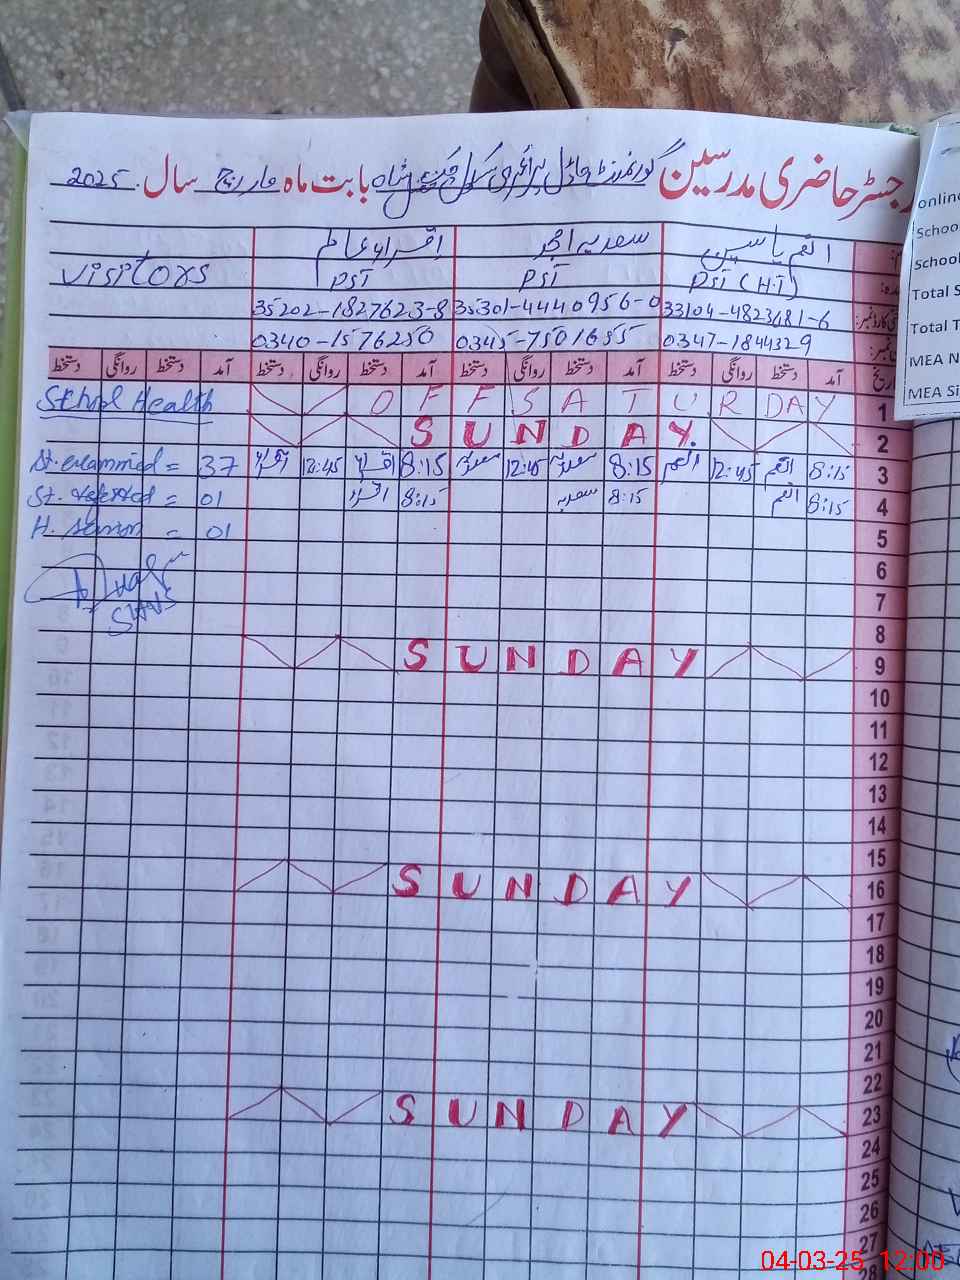 رجسٹر حاضری مدرسین گورنمنٹ ماڈل پرائمری سکول شاہ بابت ماہ مارچ سال 2025
انعم یاسین سعدیہ امجد اقراء عالم
PST (H.T) PST PST visitors
33104-4823681-6 35301-4440956-0 35202-1827623-8
0347-1844329 0345-7501655 0340-1576250
آمد دستخط روانگی دستخط آمد دستخط روانگی دستخط آمد دستخط روانگی دستخط آمد دستخط روانگی دستخط
School Health O F F S A T U R D A Y 1
S U N D A Y. 2
St. exammied = 37 اقراء 12:45 اقراء 8:15 سعدیہ 12:45 سعدیہ 8:15 انعم 12:45 انعم 8:15 3
St. referred = 01 اقراء 8:15 سعدیہ 8:15 انعم 8:15 4
H. = 01 5
6
SH&NS 7
8
S U N D A Y 9
10
11
12
13
14
15
S U N D A Y 16
17
18
19
20
21
22
S U N D A Y 23
24
25
26
27
28
online
School
School
Total S
Total T
MEA N
MEA Si
04-03-25 12:00